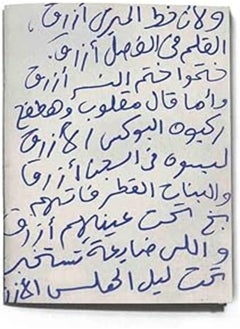 ولأن خط الحبر أزرق
القلم في الفصل أزرق
ختموا ختم النسر أزرق
وأما قال مقلوب وهطفح
ركبوه البوكس الأزرق
لبسوه في السجنا أزرق
والبنات القطر فاتهم
بخ تحت عينهم أزرق
واللي ضايعة تستخبى
تحت ليل الهلس الأزرق